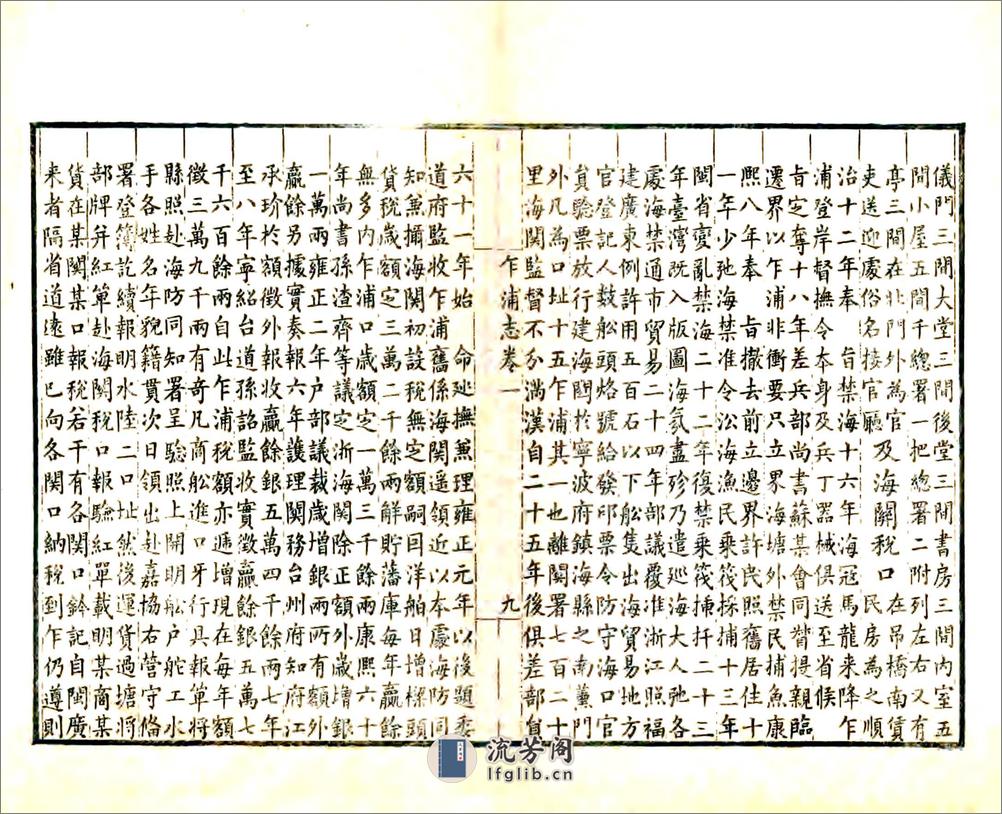 儀門三間大堂三間後堂三間書房三間內室五
間小屋五間千總署一把總署二附列左右又有
亭三間在北門外為官及海關稅口在吊橋南賃
吏送迎處俗名接官廳民房為之順
治十二年奉旨禁海十六年海寇馬龍来降乍
浦登岸督撫令本身及兵丁器械俱送至省候
旨定奪十八年差兵部尚書蘇某會同督提親臨
遷界以乍浦非衝要只立界海塘外禁民捕魚康
熙八年奉旨撤去前立邊界許民照舊居住十
一年少弛海禁准令沿海漁民乘筏採捕十三年
閩省變亂禁海二十二年復禁乘筏捕扦二十三
年臺灣既入版圖海氛盡殄乃遣廵海大人弛各
處海禁通市貿易二十四年部議覆准浙江照福
建廣東例許用五百石以下船隻出海貿易地方
官登記人數船頭烙號給發印票令防守海口官
員驗票放行建海關於寧波府鎮海縣之南薰門
外凡為口址十五乍浦其一也離關署七百二十
里海関監督不分滿漢自二十五年後俱差部員
乍浦志卷一
九
六十一年始命廵撫兼理雍正元年以後題委
道府監收乍浦舊係海関遥領近以本處海防同
知兼攝海関初設稅無定額嗣因洋舶日增樑頭
貨稅歲額定三萬二千餘兩解貯藩庫每年贏餘
無多內乍浦口歲額定一萬三千餘兩康熙六十
年尚書孫渣齊等議定浙海関除正額外歲增銀
一萬兩雍正二年户部議裁歲增銀兩所有額外
贏餘另據實奏報六年護理関務台州府知府江
承玠於額徵外報收贏餘銀五萬四千餘兩七年
至八年寧紹台道孫詔監收實徵贏餘銀五萬七
千六百餘兩自此乍浦稅額亦遞增現在每年額
徵三萬九千兩有奇凡商船進口牙行具報單將
縣照赴海防同知署呈驗照上開明船户舵工水
手各姓名年貌籍貫次日領出赴嘉協右營守備
署登簿訖續報明水陸二口址然後運貨過塘將
部牌并紅單赴海関稅口報驗紅單載明某商某
貨在某関某口報稅若干有各関口鈐記自閩廣
来者隔省道遠雖已向各関口納稅到乍仍遵則
流芳阁
lfglib.cn